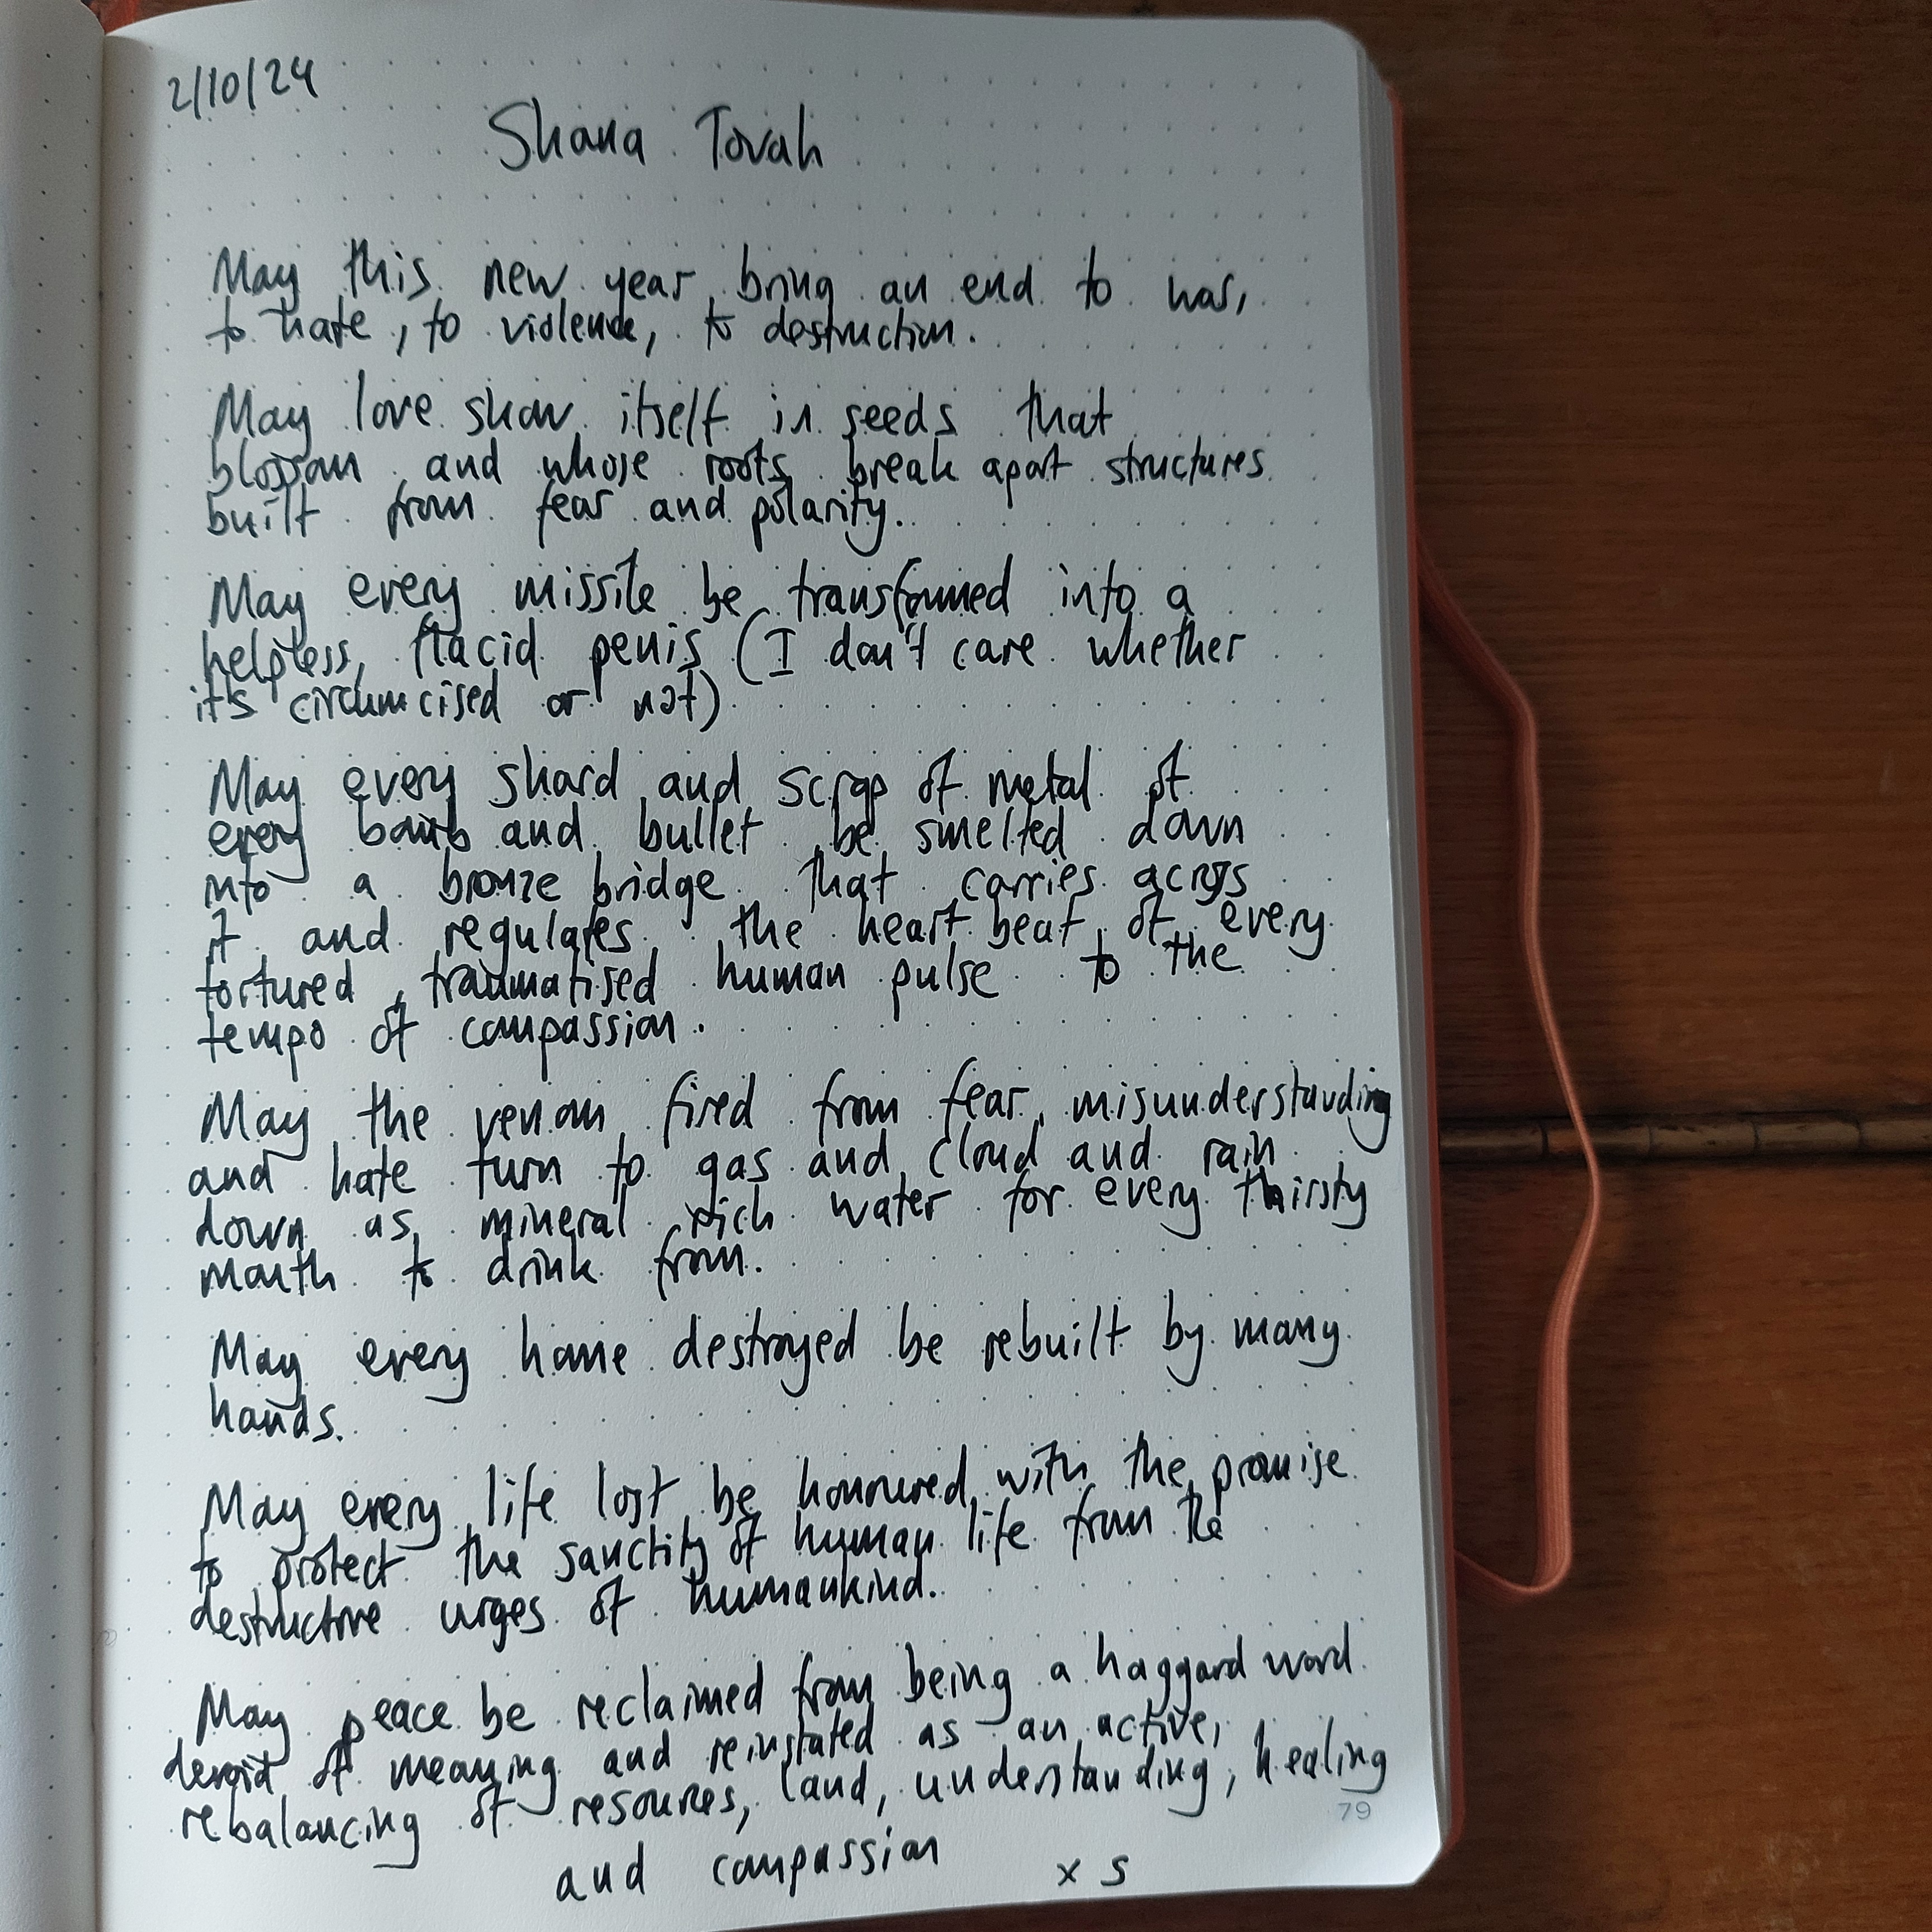 2/10/24
Shana Tovah
May this new year bring an end to war,
to hate, to violence, to destruction.
May love show itself in seeds that
blossom and whose roots break apart structures
built from fear and polarity.
May every missile be transformed into a
helpless, flacid penis (I don't care whether
it's circumcised or not)
May every shard and scrap of metal of
every bomb and bullet be smelted down
into a bronze bridge that carries across
it and regulates the heart beat of every
tortured, traumatised human pulse to the
tempo of compassion.
May the venom fired from fear, misunderstanding
and hate turn to gas and cloud and rain
down as mineral rich water for every thirsty
mouth to drink from.
May every home destroyed be rebuilt by many
hands.
May every life lost be honoured with the promise
to protect the sanctity of human life from the
destructive urges of humankind.
May peace be reclaimed from being a haggard word
devoid of meaning and reinstated as an active,
rebalancing of resources, land, understanding, healing
79
and compassion x S